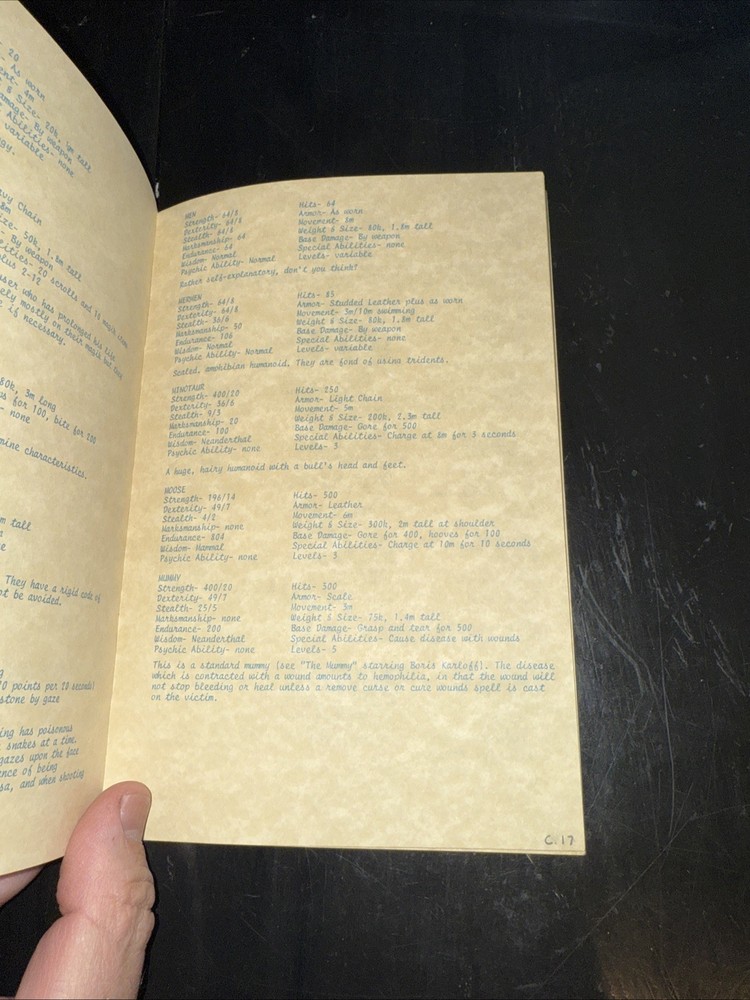 20
As worn
4m
& Size- 20k, 4m tall
Damage- By weapon
Abilities- none
variable
Heavy Chain
8m
Size- 50k, 1.8m tall
By weapon
20 scrolls and 10 magic items
plus 2-12
user who has prolonged his life
rely mostly on their magic but have
if necessary.
80k, 3m long
for 100, bite for 200
none
mine characteristics.
m tall
They have a rigid code of
not be avoided.
20 points per 20 seconds!
stone by gaze
ing has poisonous
snakes at a time.
gazes upon the face
ence of being
sa, and when shooting
MEN
Strength- 64/8 Hits- 64
Dexterity- 64/8 Armor- As worn
Stealth- 64/8 Movement- 8m
Marksmanship- 64 Weight & Size- 80k, 1.8m tall
Endurance- 64 Base Damage- By weapon
Wisdom- Normal Special Abilities- none
Psychic Ability- Normal Levels- variable
Rather self-explanatory, don't you think?
MERMEN
Strength- 64/8 Hits- 85
Dexterity- 64/8 Armor- Studded Leather plus as worn
Stealth- 36/6 Movement- 3m/10m swimming
Marksmanship- 50 Weight & Size- 80k, 1.8m tall
Endurance- 106 Base Damage- By weapon
Wisdom- Normal Special Abilities- none
Psychic Ability- Normal Levels- variable
Scaled, amphibian humanoid. They are fond of using tridents.
MINOTAUR
Strength- 400/20 Hits- 250
Dexterity- 36/6 Armor- Light Chain
Stealth- 9/3 Movement- 5m
Marksmanship- 20 Weight & Size- 200k, 2.3m tall
Endurance- 100 Base Damage- Gore for 500
Wisdom- Neanderthal Special Abilities- Charge at 8m for 5 seconds
Psychic Ability- none Levels- 3
A huge, hairy humanoid with a bull's head and feet.
MOOSE
Strength- 196/14 Hits- 300
Dexterity- 49/7 Armor- Leather
Stealth- 4/2 Movement- 6m
Marksmanship- none Weight & Size- 300k, 2m tall at shoulder
Endurance- 804 Base Damage- Gore for 400, hooves for 100
Wisdom- Mammal Special Abilities- Charge at 10m for 10 seconds
Psychic Ability- none Levels- 3
MUMMY
Strength- 400/20 Hits- 300
Dexterity- 49/7 Armor- Scale
Stealth- 25/5 Movement- 3m
Marksmanship- none Weight & Size- 75k, 1.4m tall
Endurance- 200 Base Damage- Grasp and tear for 500
Wisdom- Neanderthal Special Abilities- Cause disease with wounds
Psychic Ability- none Levels- 5
This is a standard mummy (see "The Mummy" starring Boris Karloff). The disease
which is contracted with a wound amounts to hemophilia, in that the wound will
not stop bleeding or heal unless a remove curse or cure wounds spell is cast
on the victim.
C.17